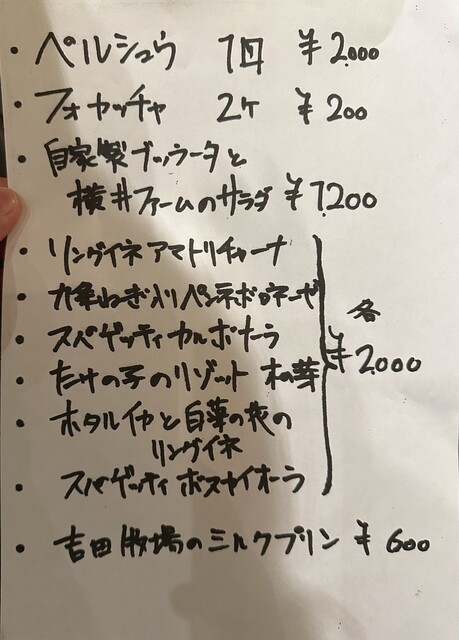 ・ペルシュウ 1皿 ¥2000
・フォカッチャ 2ケ ¥200
・自家製ブッラータと
横井ファームのサラダ ¥1,200
・リングイネ アマトリチャーナ
・九条ねぎ入りペンネボロネーゼ
各
・スパゲッティ カルボナーラ
¥2000
・たけの子のリゾット 木の芽
・ホタルイカと白菜の
リングイネ
・スパゲッティ ボスカイオーラ
・吉田牧場のミルクプリン ¥600